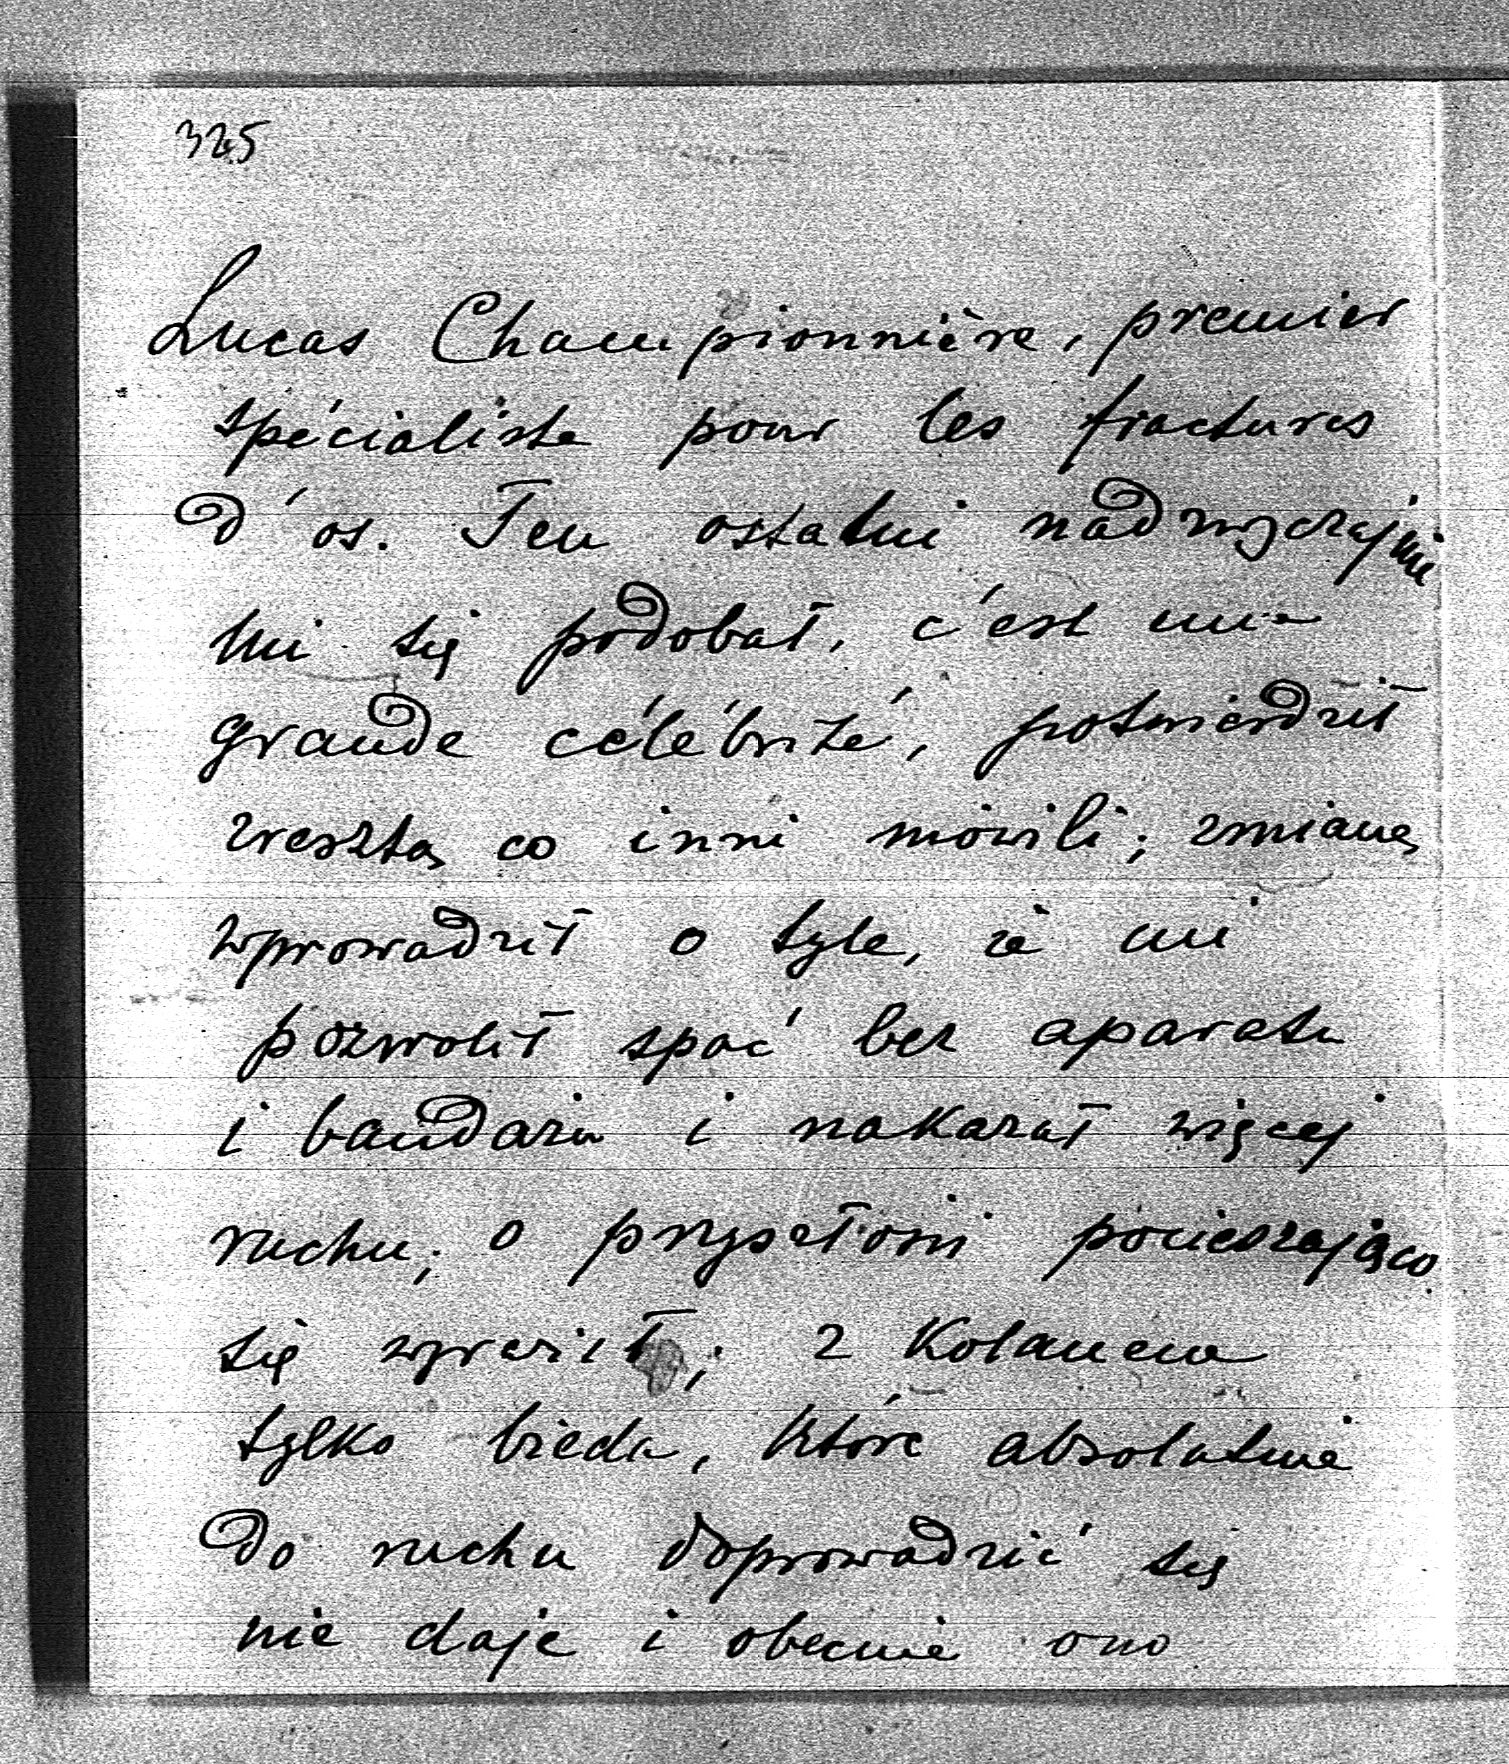 325
Lucas Championnière, premier
spécialiste pour les fractures
d'os. Ten ostatni nadzwyczajnie
mi się podobał, c'est une
grande célébrité, potwierdził
zresztą co inni mówili; zmianę
wprowadził o tyle, że mi
pozwolił spać bez aparatu
i bandażu i nakazał więcej
ruchu; o przyszłości pocieszająco
się wyraził; z kolanem
tylko bieda, które absolutnie
do ruchu doprowadzić się
nie daje i obecnie ono